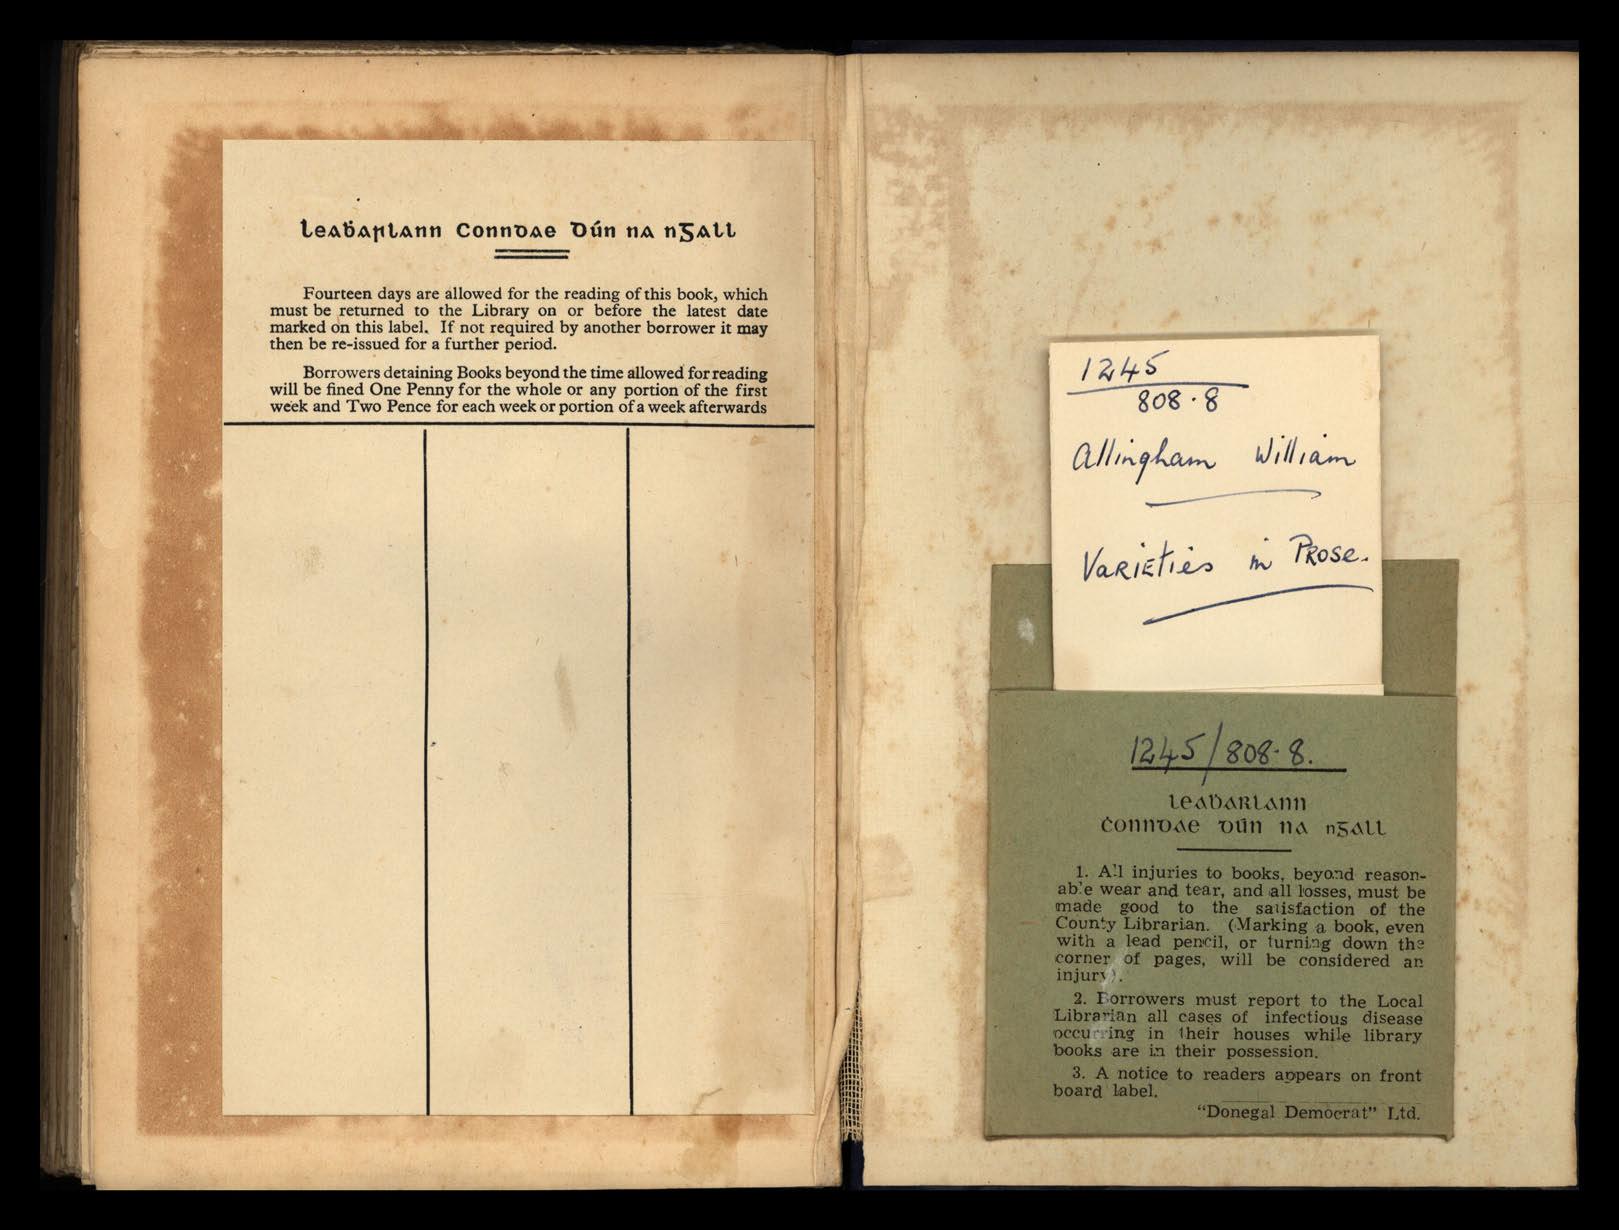 Leaḃarlann Conndae Dún na nGall
Fourteen days are allowed for the reading of this book, which
must be returned to the Library on or before the latest date
marked on this label. If not required by another borrower it may
then be re-issued for a further period.
Borrowers detaining Books beyond the time allowed for reading
will be fined One Penny for the whole or any portion of the first
week and Two Pence for each week or portion of a week afterwards
1245
808·8
Allingham William
Varieties in Prose.
1245/808·8.
leaḃarlann
ċonndae dún na ngall
1. All injuries to books, beyond reason-
able wear and tear, and all losses, must be
made good to the satisfaction of the
County Librarian. (Marking a book, even
with a lead pencil, or turning down the
corner of pages, will be considered an
injury).
2. Borrowers must report to the Local
Librarian all cases of infectious disease
occurring in their houses while library
books are in their possession.
3. A notice to readers appears on front
board label.
"Donegal Democrat" Ltd.